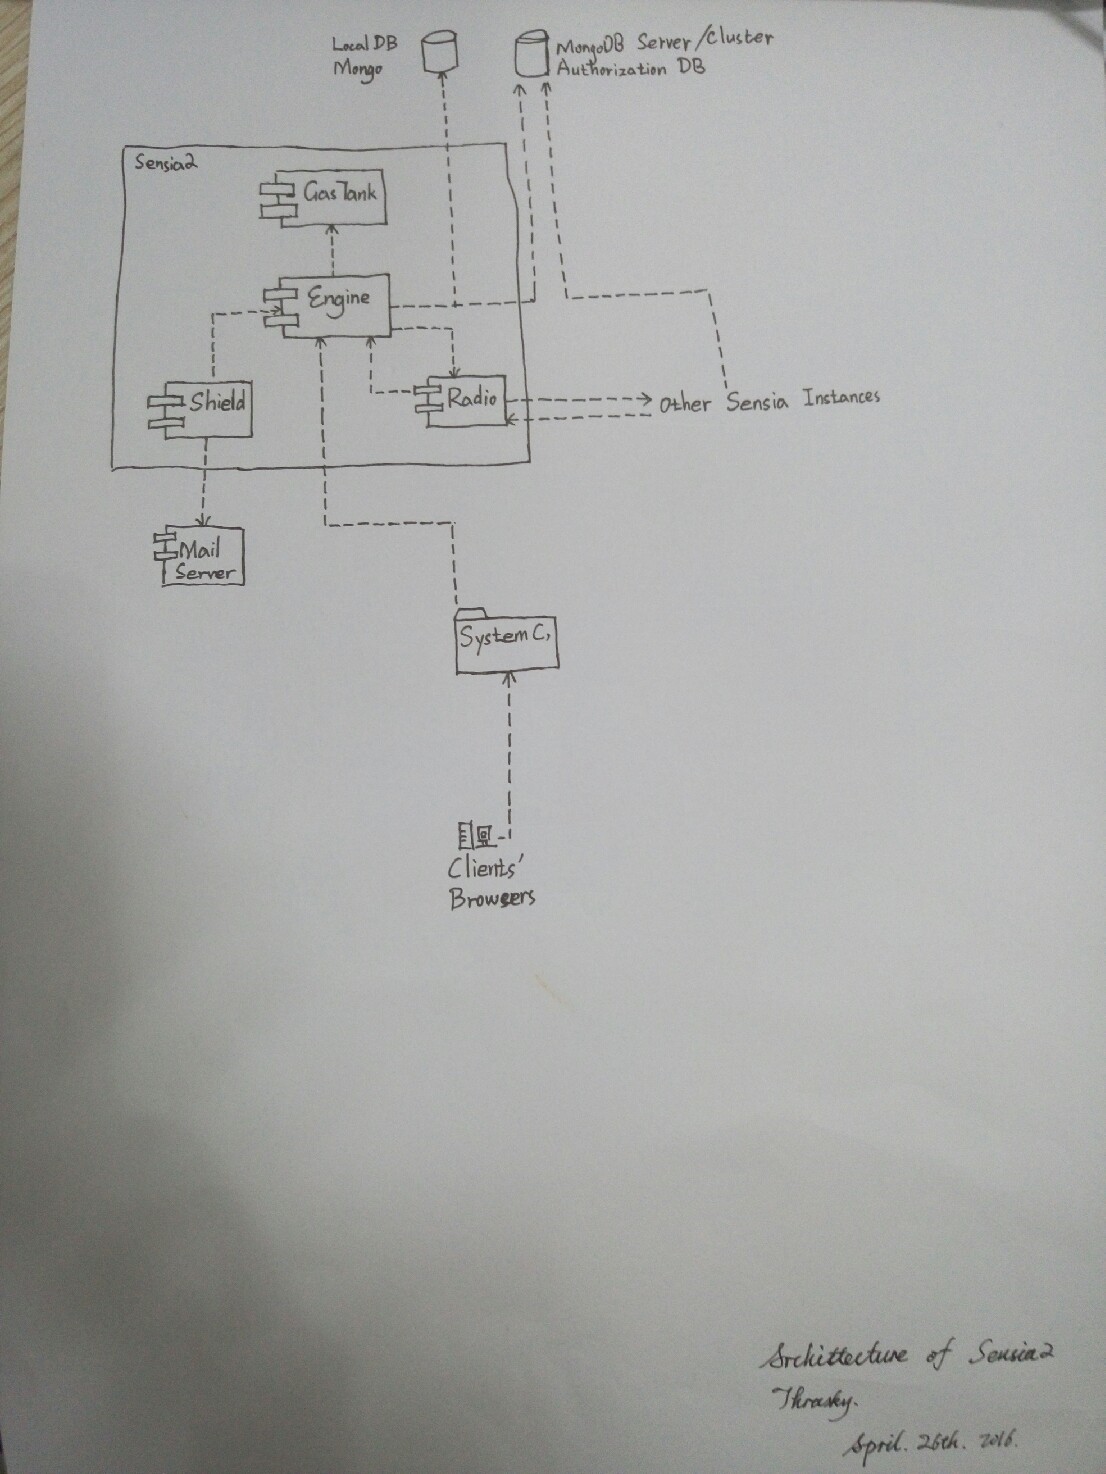 Local DB
Mongo
MongoDB Server/Cluster
Authorization DB
Sensia2
Gas Tank
Engine
Shield
Radio
Other Sensia Instances
Mail
Server
System C,
Clients'
Browsers
Archittecture of Sensia2
Thrasky.
April. 26th. 2016.